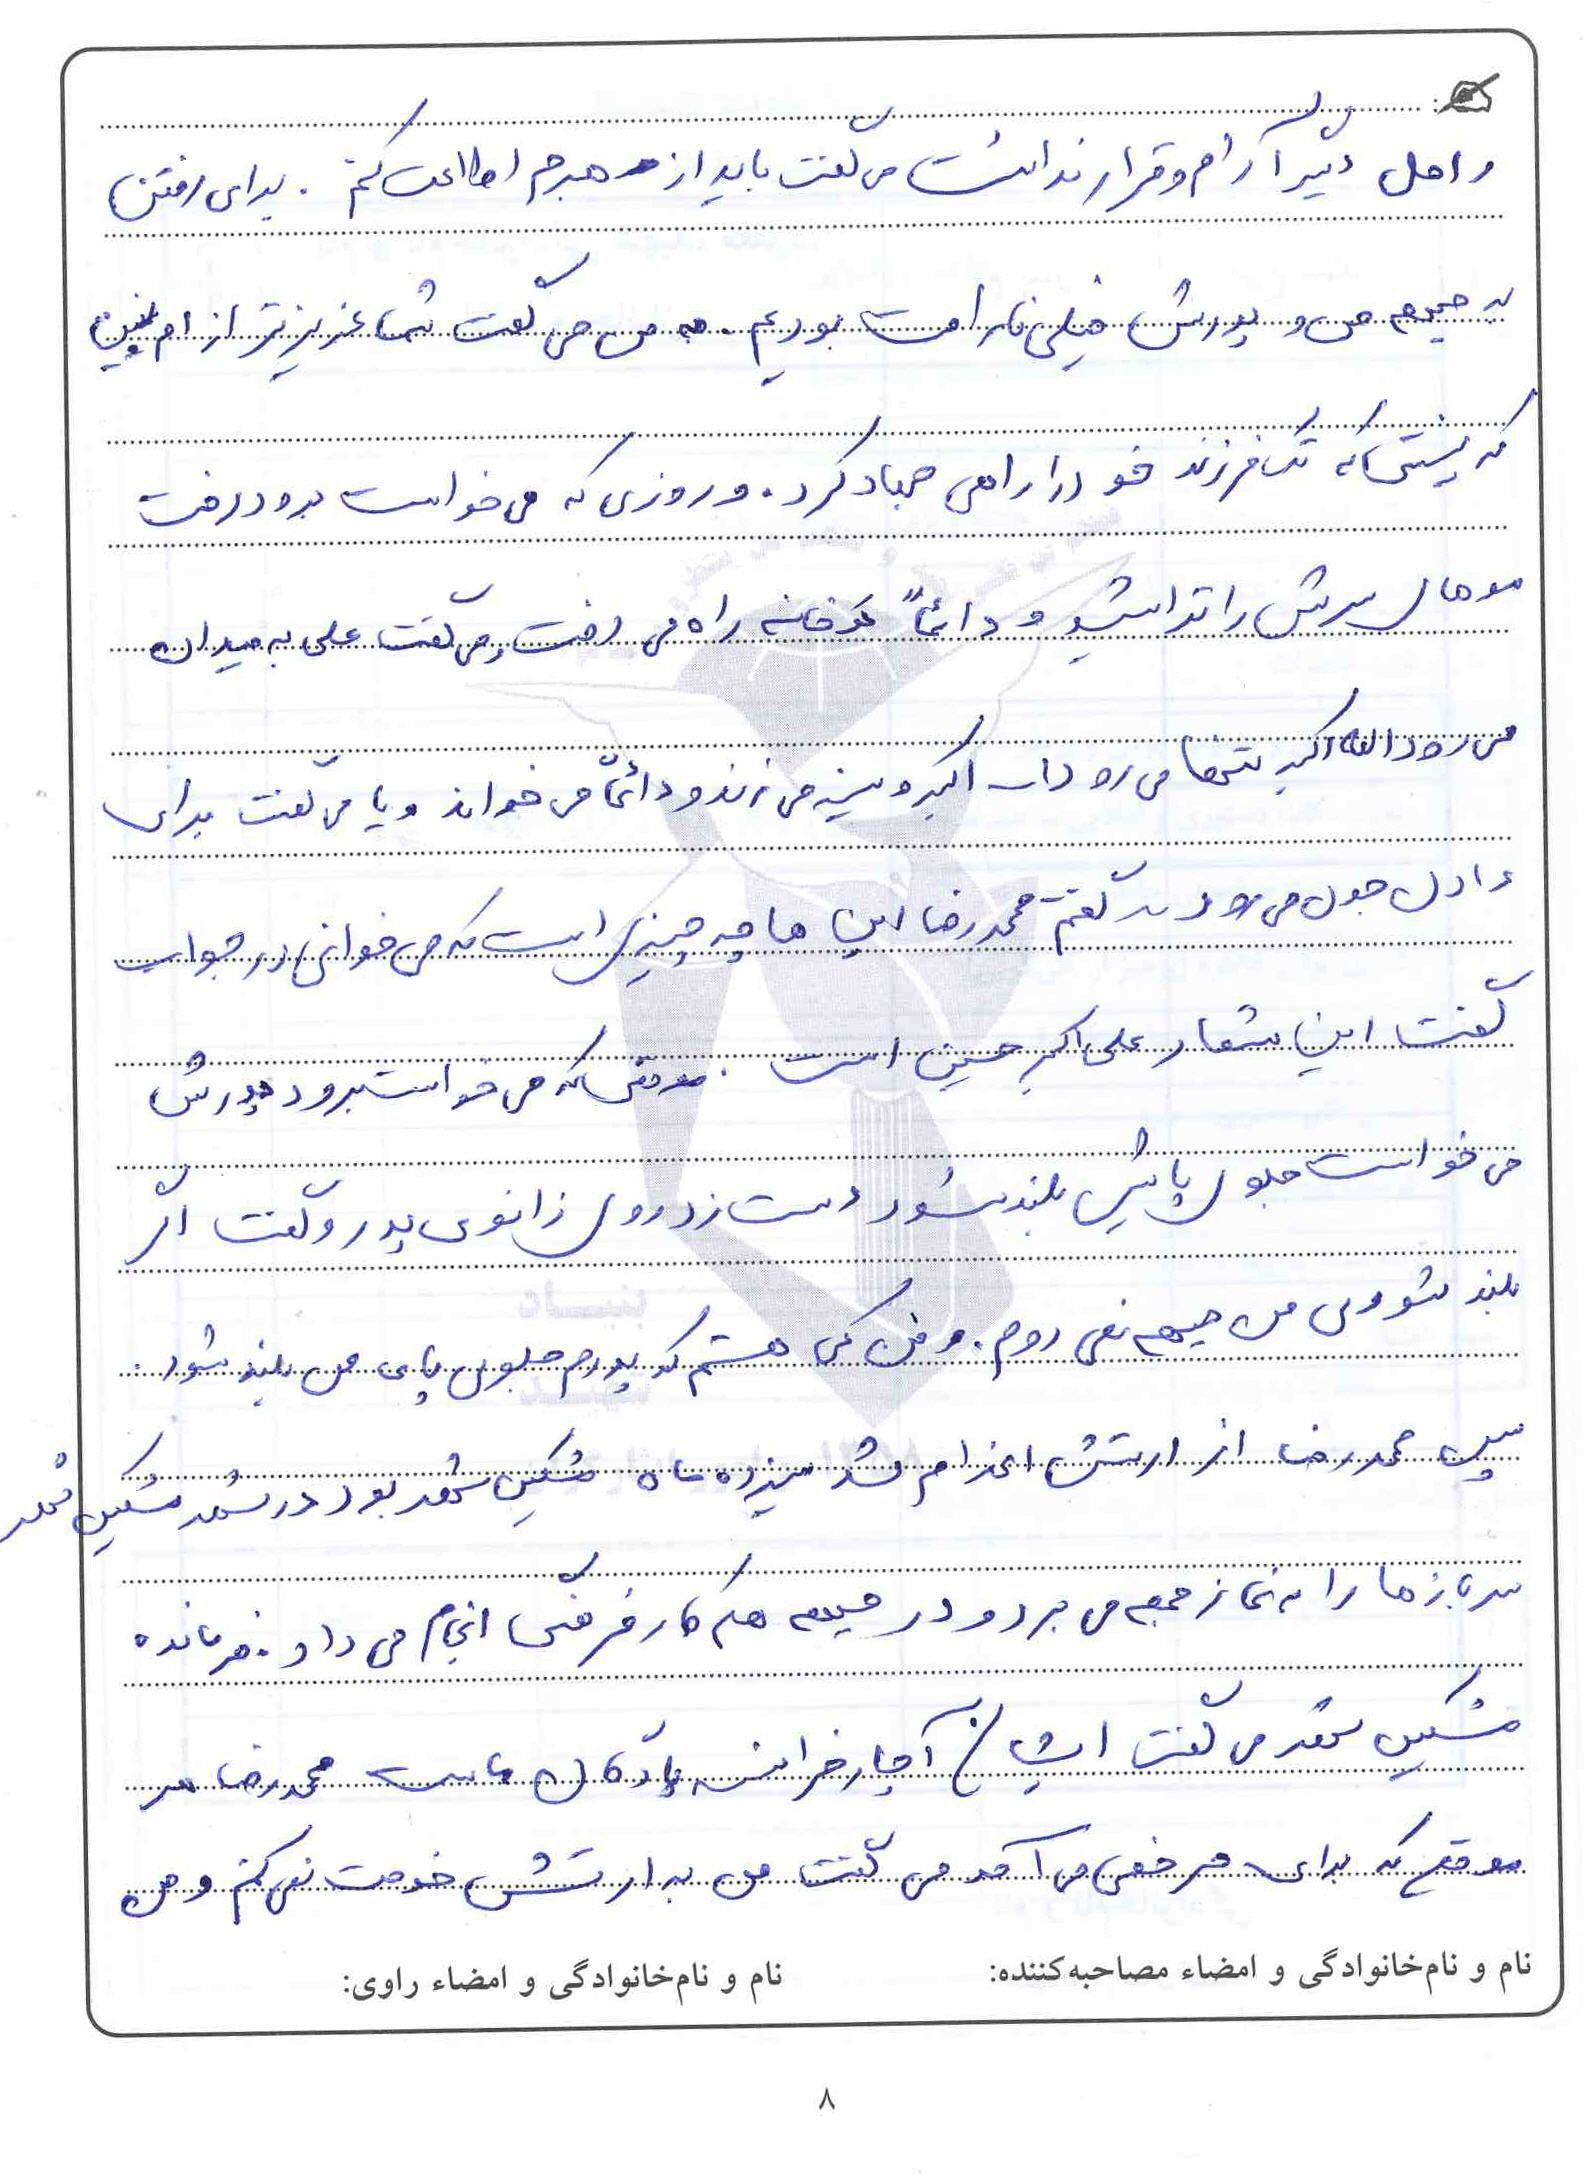 و اصل دیگر آرام و قرار نداشت می گفت باید از رهبرم اطاعت کنم . برای رفتن
به جبهه من و پدرش خیلی ناراحت بودیم . به من می گفت شما عزیزتر از ام لیلا
که نیستی که تک فرزند خود را راهی جهاد کرد . و روزی که می خواست برود رفت
موهای سرش را تراشید و دائماً در خانه راه می رفت و می گفت علی به میدان
می رود الله اکبر تنها می رود الله اکبر و سینه می زند و دائماً می خواند و یا می گفت برای
عادل جون می رود گفتم محمدرضا این ها چه چیزی است که می خوانی در جواب
گفت این شعار علی اکبر حسین است . موقعی که می خواست برود پدرش
می خواست جلوی پایش بلند شود دست زد روی زانوی پدر و گفت اگر
بلند شوی من جبهه نمی روم . و من کی هستم که پدرم جلوی پای من بلند شود .
سپس محمدرضا از ارتش اعزام شد سیزده ماه مشکین شهر بود در مشکین شهر
سربازها را به نماز جمعه می برد و در جبهه هم کار فرهنگی انجام می داد . فرمانده
مشکین شهر می گفت ایشان آچار فرانسه پادگان ماست محمدرضا هر
موقع که برای مرخصی می آمد می گفت من به ارتش خدمت نمی کنم و من
نام و نام‌خانوادگی و امضاء مصاحبه‌کننده: نام و نام‌خانوادگی و امضاء راوی:
۸